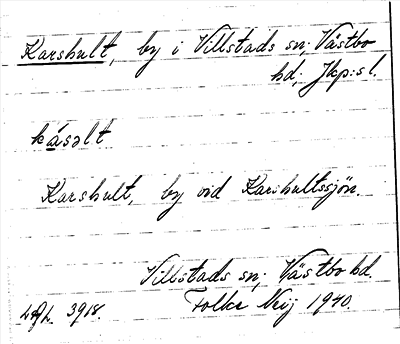 Karshult, by i Villstads sn; Västbo
hd; Jkp:s l.
kásəlt
Karshult, by vid Karshultssjön.
Villstads sn; Västbo hd.
3918. Folke Neij 1940.